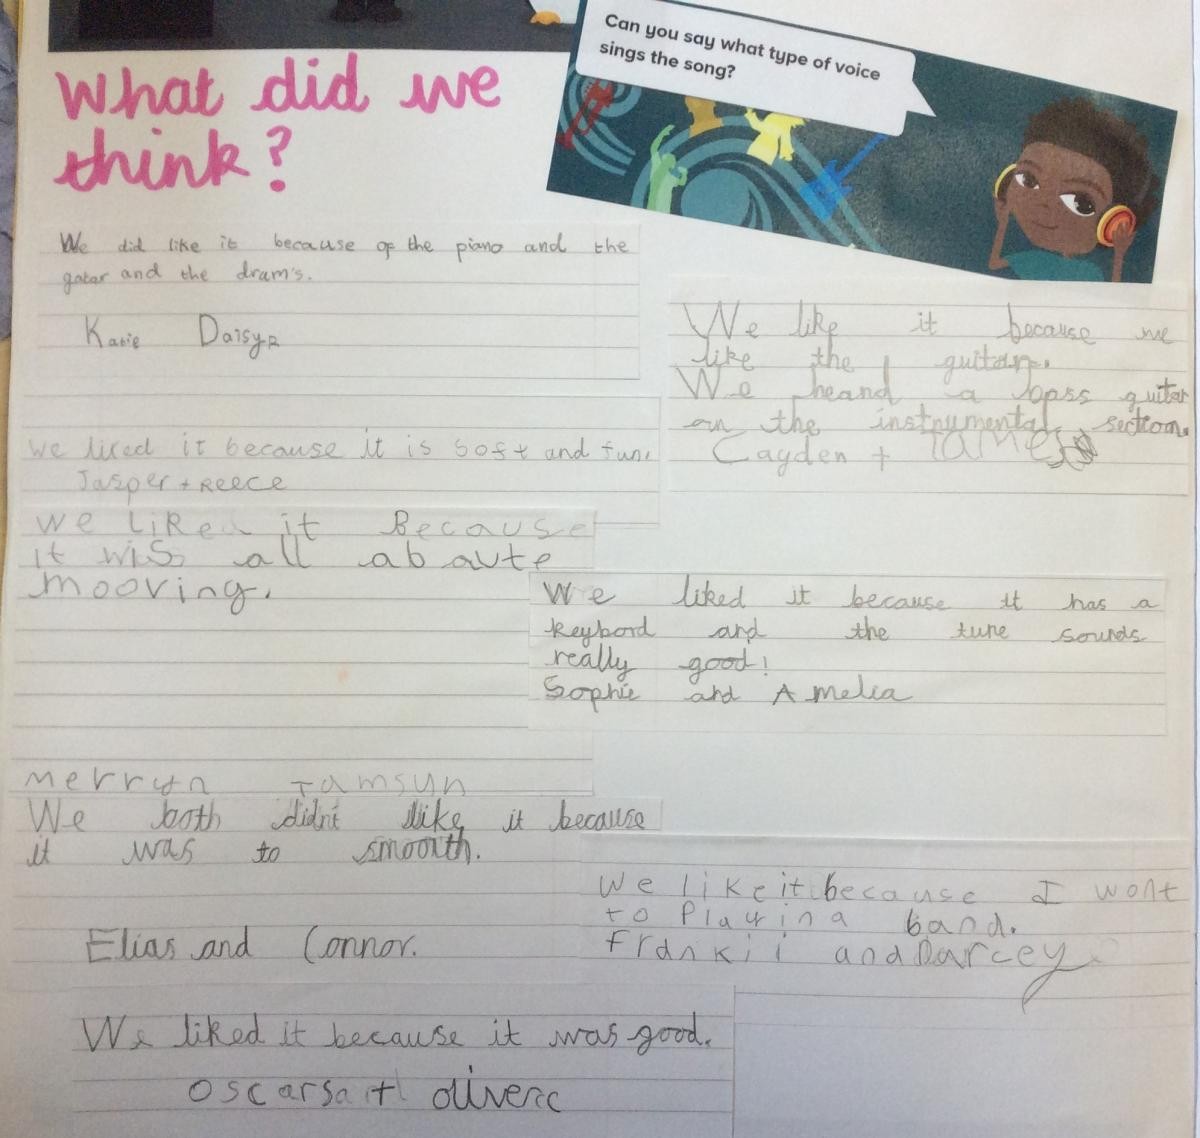 What did we
think?
Can you say what type of voice
sings the song?
We did like it because of the piano and the
gatar and the dram's.
Katie Daisy R
We like it because we
like the guitar.
We heand a bass guitar
on the instrumental section.
Cayden + James
we liked it because it is soft and fun.
Jasper + Reece
we liked it Because
it was all ab aute
mooving.
We liked it because it has a
keybord and the tune sounds
really good!
Sophie and Amelia
merryn Tamsyn
We both didn't like it because
it was to smooth.
Elias and Connor.
We like it because I wont
to Play in a band.
Frankii and Darcey
We liked it because it was good.
oscarsa + oliverc